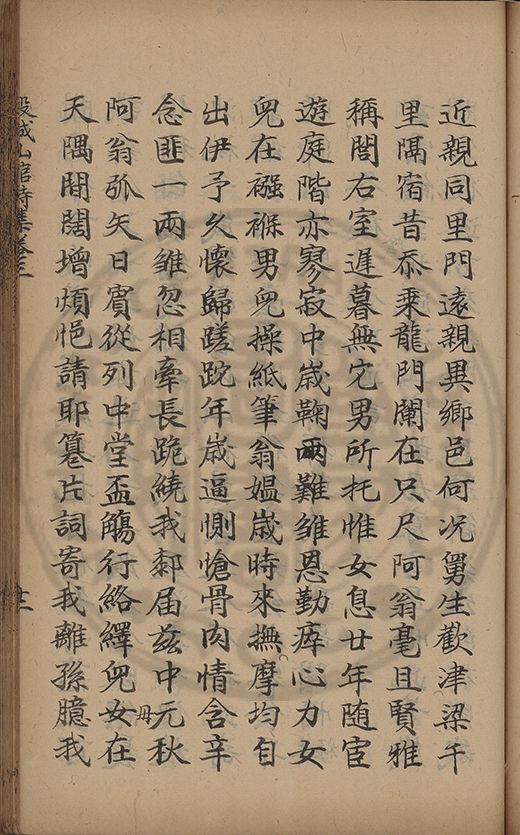 近親同里門遠親異鄉邑何况舅生歡津梁千
里隔宿昔忝乘龍門闌在只尺阿翁毫且賢雅
稱閭右室遲暮無它男所托惟女息廿年随宦
遊庭階亦寥寂中歲鞠兩難雏恩勤瘁心力女
兒在襁褓男兒操紙筆翁媪歲時來撫摩均自
出伊予久懷歸蹉跎年歲逼惻愴骨肉情含辛
念匪一兩雏忽相牽長跪繞我郀届兹中元秋
阿翁弧矢日賓從列中堂盃觴行絡繹兒女在
天隅間闊增煩悒請耶篹片詞寄我離孫臆我
母
榖城山館詩集卷三
廿二